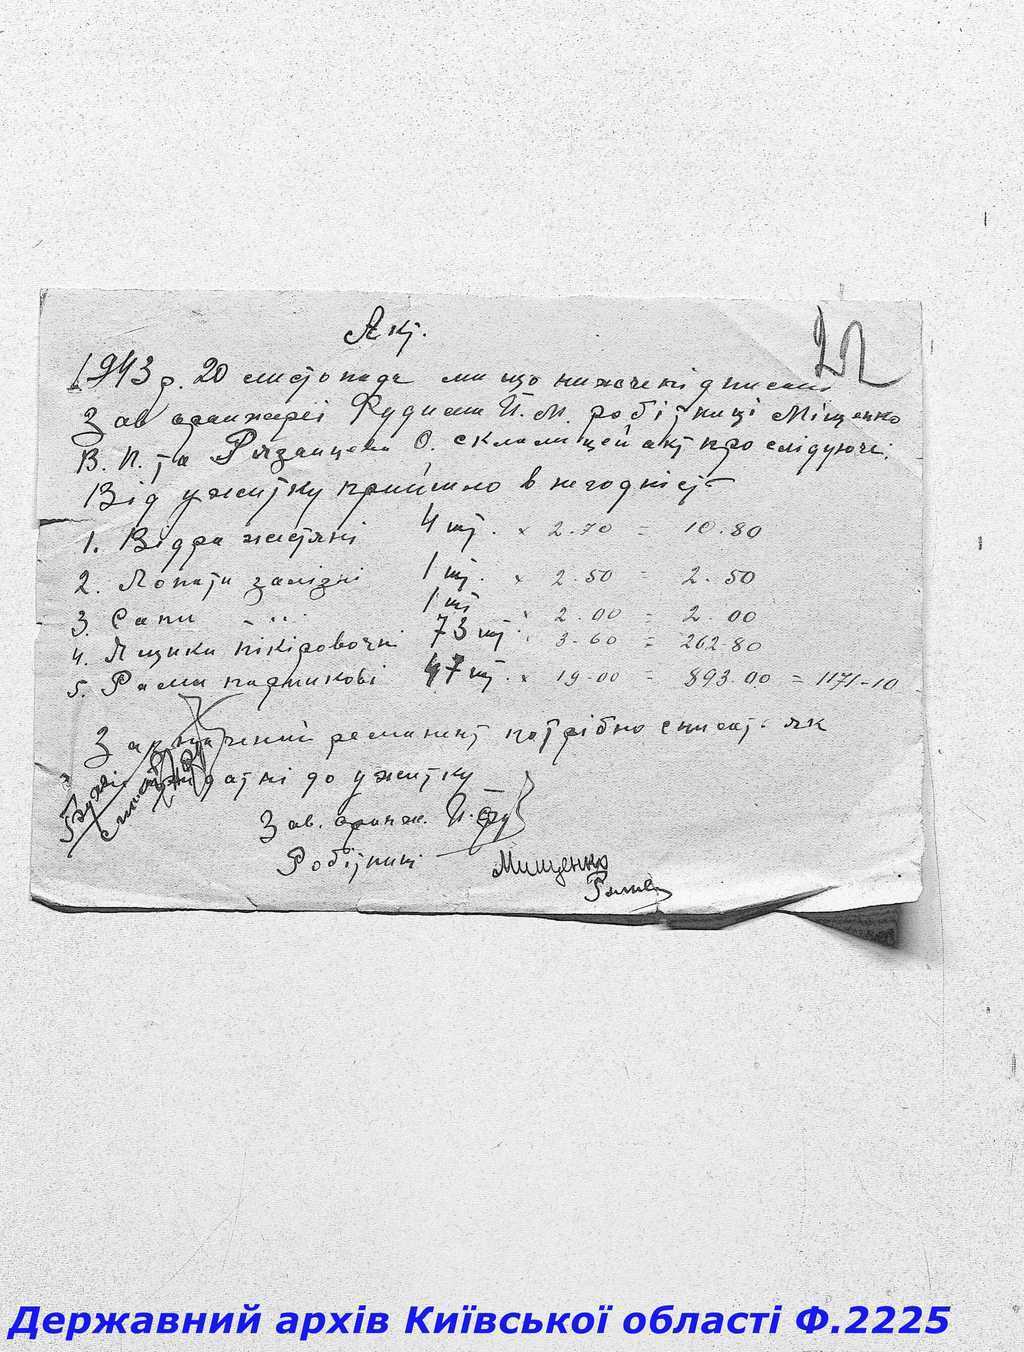 Акт.
22
1943 р. 20 листопада ми що нижчепідписані
Зав оранжереї Фудиш Й. М. робітниці Міщенко
В. П. та Рязанцева О. склали цей акт про слідуюче:
Від ужитку прийшло в негодність
1. Відра жестяні 4 шт. × 2.70 = 10.80
2. Лопати залізні 1 шт. × 2.50 = 2.50
3. Сапи - " - 1 шт × 2.00 = 2.00
4. Ящики пікіровочні 73 шт. 3.60 = 262.80
5. Рами парникові 47 шт. × 19.00 = 893.00 = 1171-10
Зазначений реманент потрібно списать як
датні до ужитку
Зав. оранж. Й.
Робітниці Мищенко
Державний архів Київської області Ф.2225